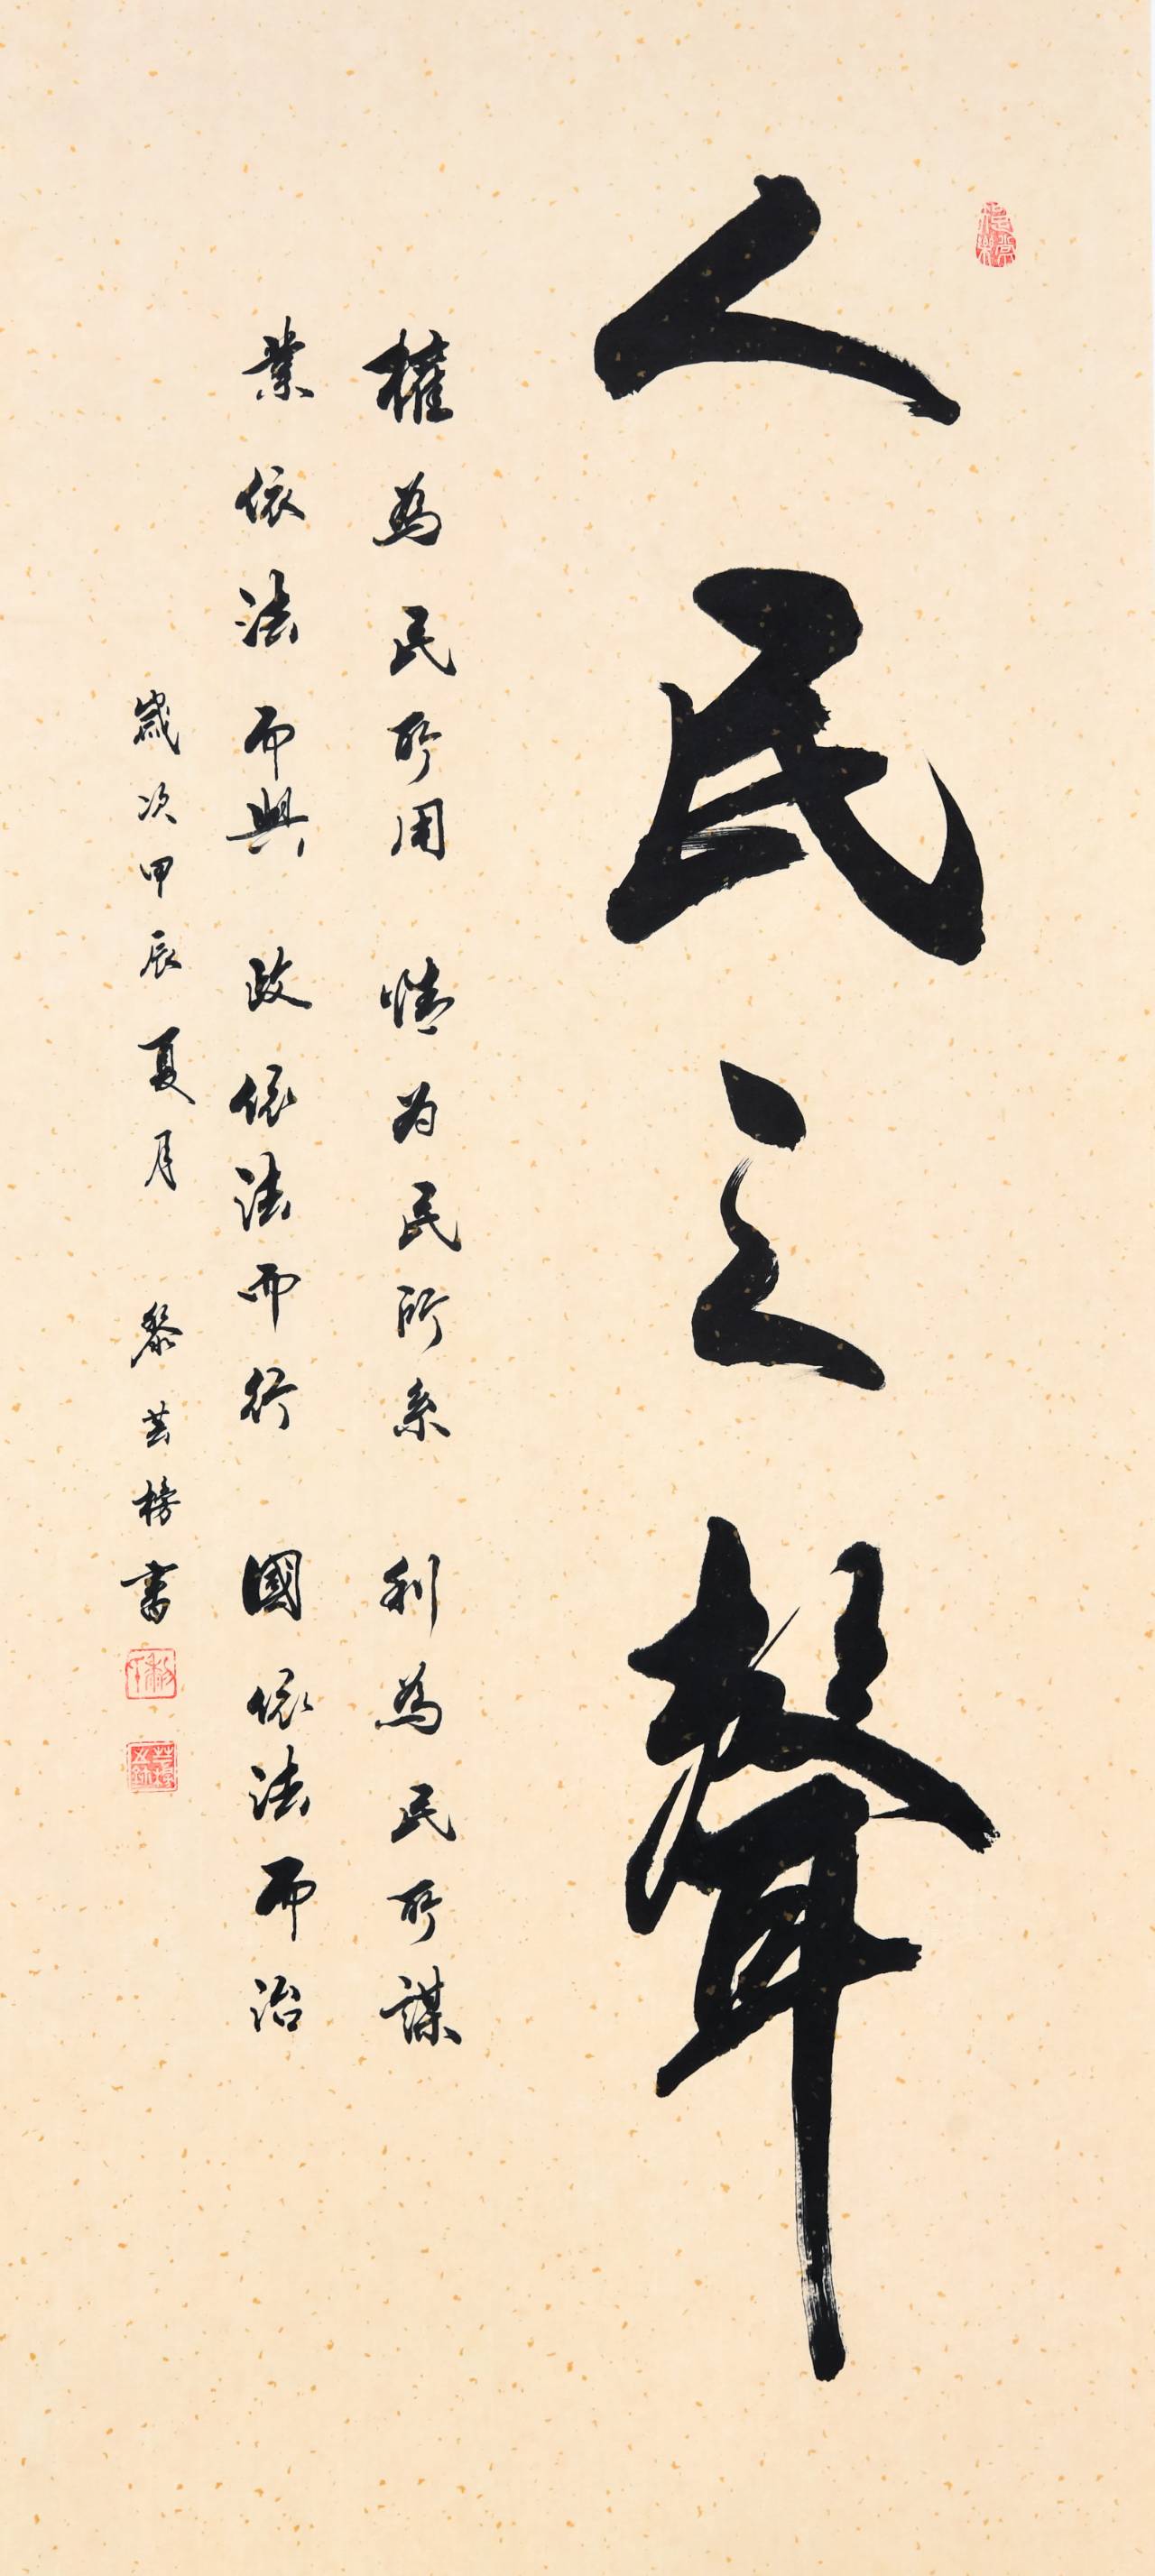 人民之聲
權為民所用 情为民所系 利為民所謀
業依法而興 政依法而行 國依法而治
歲次甲辰夏月 黎芸榜書